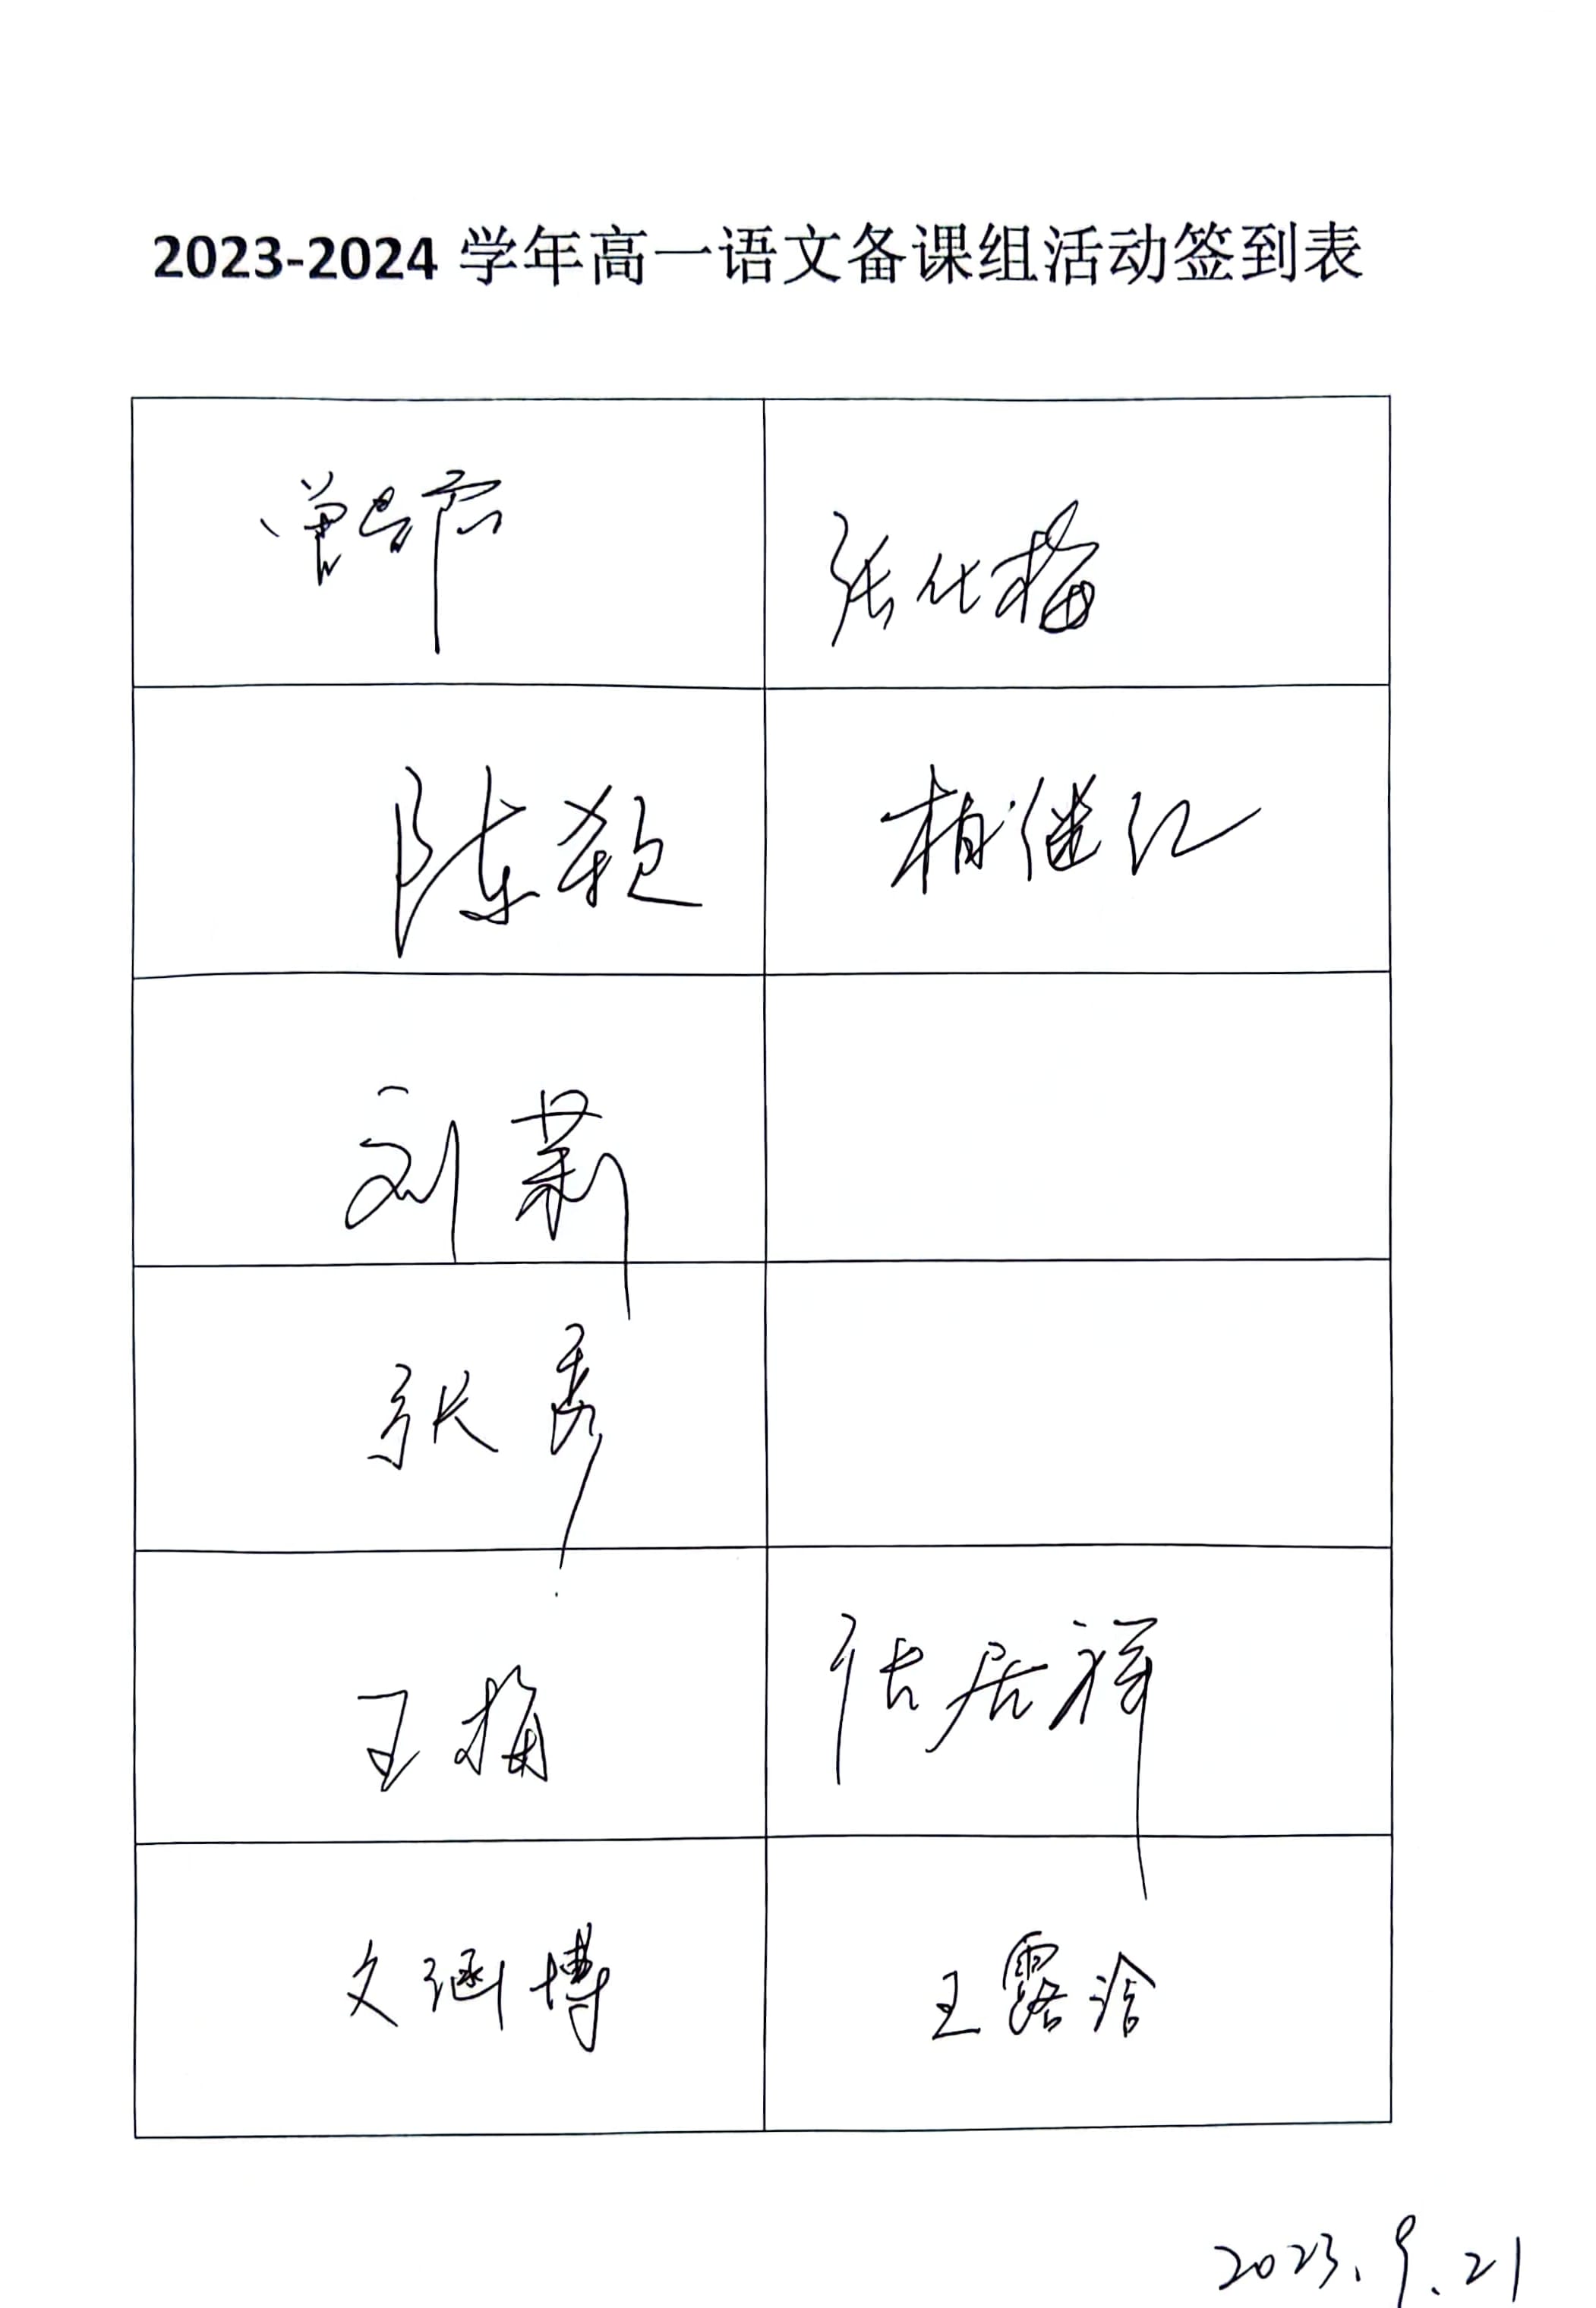 2023-2024 学年高一语文备课组活动签到表
张化梅
陈颖
刘莉
张秀
王梅 张居祥
文涵博 王露洽
2023.9.21